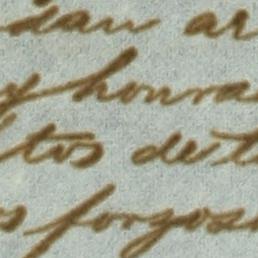 dan ar
y honra
tos de t
s forgos